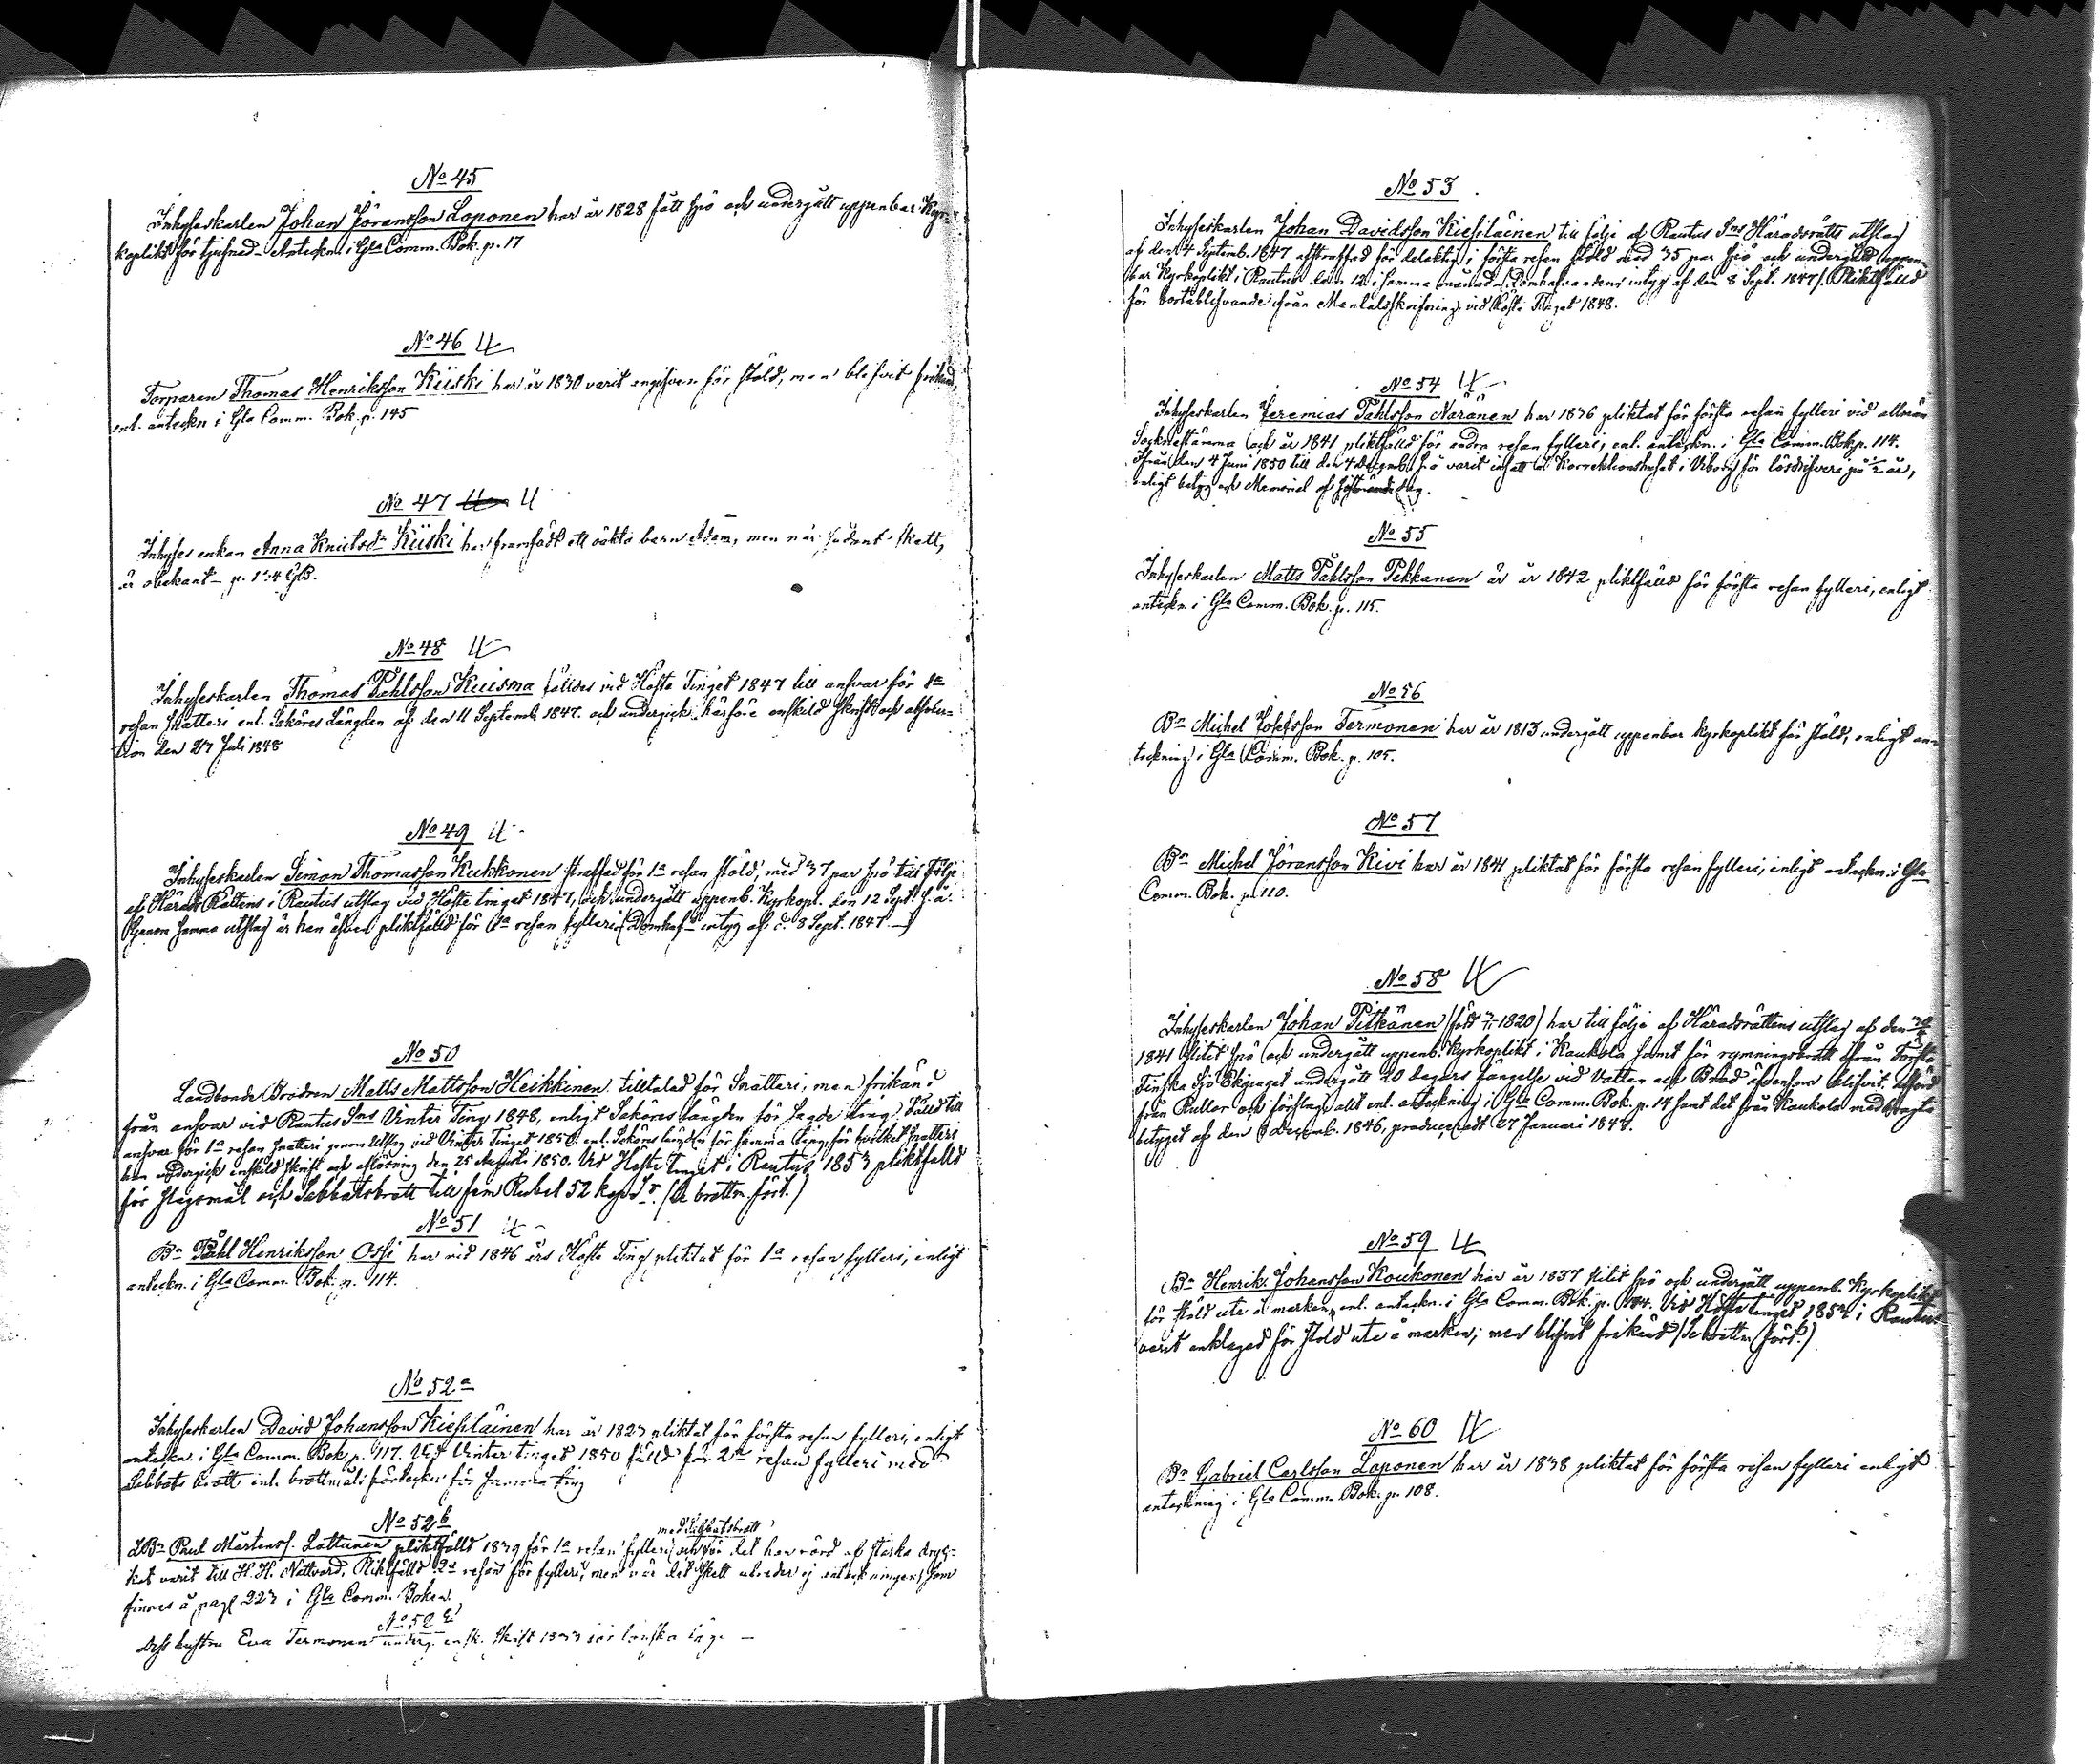 No 45
Inhyseskarlen Johan Jöransson Loponen har år 1828 fått spö och undergått uppenbar Kyr-
koplikt för tjufnad - Anteckn. i Gla Comm. Bok. p. 17
No 46
Torparen Thomas Henriksson Kiiski har år 1830 varit angifven för stöld, men blifvit frikänd,
enl. anteckn i Gla Comm. Bok. p. 145
No 47
Inhyses enkan Anna Knutsdr Kiiski har framfödt ett oäkta barn Adam, men när sådant skett,
är obekant - p. 134 GlB.
No 48
Inhyseskarlen Thomas Påhlsson Kuisma fälldes vid Höste Tinget 1847 till ansvar för 1a
resan snatteri enl. Saköres Längden af den 11 Septemb. 1847. och undergick härföre enskild skrift och absolu-
tion den 23 Juli 1848
No 49
Inhyseskarlen Simon Thomasson Kukkonen straffad för 1a resan stöld, med 37 par spö till följe
af Härads Rättens i Rautus utslag vid Höste tinget 1847, och undergått uppenb. Kyrkopl. den 12 Sept. s. å.
Genom samma utslag är han äfven pliktfälld för 1a resan fylleri (Domhaf- intyg af d. 8 Sept. 1847 -)
No 50
Landbonde Brodren Matts Mattsson Heikkinen tilltalad för Snatteri, men frikänd
från ansvar vid Rautus Sns Vinter Ting 1848, enligt Saköres längden för sagde ting. Fälld till
ansvar för 1a resan snatteri genom utslag vid Vinter Tinget 1850 enl. Saköres längden för samma ting, för hvilket snatteri
han undergick enskild skrift och aflösning den 25 Augusti 1850. Vid Höste tinget i Rautus 1853 pliktfälld
för slagsmål och Sabbatsbrott till fem Rubel 52 kop. Sr. (Se brottm. fört.)
No 51
Bn Påhl Henriksson Ossi har vid 1846 års Höste Ting pliktat för 1a resan fylleri, enligt
anteckn. i Gla Comm. Bok. p. 114.
No 52a
Inhyseskarlen David Johansson Kiesiläinen har år 1823 pliktat för första resan fylleri, enligt
anteckn. i Gla Comm. Bok. p. 117. Vid Vinter tinget 1850 fälld för 2a resan fylleri med
Sabbats brott enl. brottmåls förteckn. för samma ting
No 52b
med Sabbatsbrott
LBn Paul Mårtenss. Lattunen pliktfälld 1839 för 1a resan fylleri och för det han rörd af starka dryc-
ker varit till H. H. Nattvard. Pliktfälld 2a resan för fylleri, men när det skett utreder ej anteckningen som
finnes å pag 223 i Gla Comm. Boken.
No 52 c
Dess hustru Eva Termonen underg. ensk. skrift
No 53
Inhyseskarlen Johan Davidsson Kiesiläinen till följe af Rautus Sns Häradsrätts utslag
af den 4 Septemb. 1847 afstraffad för delaktig i första resan stöld med 35 par spö och undergått uppen-
bar Kyrkoplikt i Rautus den 12 i samma månad - (Domhafvandens intyg af den 8 Sept. 1847). Pliktfälld
för borteblifvande från Mantalsskrifning vid Höste Tinget 1848.
No 54
Inhyseskarlen Jeremias Påhlsson Näränen har 1836 pliktat för första resan fylleri vid allmän
Sockenstämma och år 1841 pliktfälld för andra resan fylleri, enl. anteckn. i Gla Comm. Bok. p. 114.
Ifrån den 4 Juni 1850 till den 4 Decemb. s. å varit insatt å Korrektionshuset i Viborg för lösdrifveri på 1/2 år,
enligt betyg och Memorial af
No 55
Inhyseskarlen Matts Påhlsson Pekkanen är år 1842 pliktfälld för första resan fylleri, enligt
anteckn. i Gla Comm. Bok. p. 115.
No 56
Bn Michel Josefsson Termonen har år 1813 undergått uppenbar Kyrkoplikt för stöld, enligt an-
teckning i Gla Comm. Bok. p. 105.
No 57
Bn Michel Jöransson Kivi har år 1841 pliktat för första resan fylleri, enligt anteckn. i Gla
Comm. Bok. p. 110.
No 58
Inhyseskarlen Johan Pitkänen (född 1820) har till följe af Häradsrättens utslag af den
1841 slitit spö och undergått uppenb. kyrkoplikt i Kaukola samt för rymningsbrott ifrån Första
Finska Sjö Ekipaget undergått 20 dagars fängelse vid Vatten och Bröd äfvensom blifvit afförd
från Rullor och förslag, allt enl. anteckning i Gla Comm. Bok. p. 14 samt det från Kaukola medbragta
betyget af den Decemb. 1846, produceradt 27 Januari 1847.
No 59
Bn Henrik Johansson Koukonen har år 1837 slitit spö och undergått uppenb. Kyrkoplikt
för stöld ute å marken, enl. anteckn. i Gla Comm. Bok. p. 104. Vid Höste tinget 1852 i Rautus
varit anklagad för stöld ute å marken, men blifvit frikänd (Se brottm. fört.)
No 60
Bn Gabriel Carlsson Laponen har år 1838 pliktat för första resan fylleri enligt
anteckning i Gla Comm. Bok. p. 108.